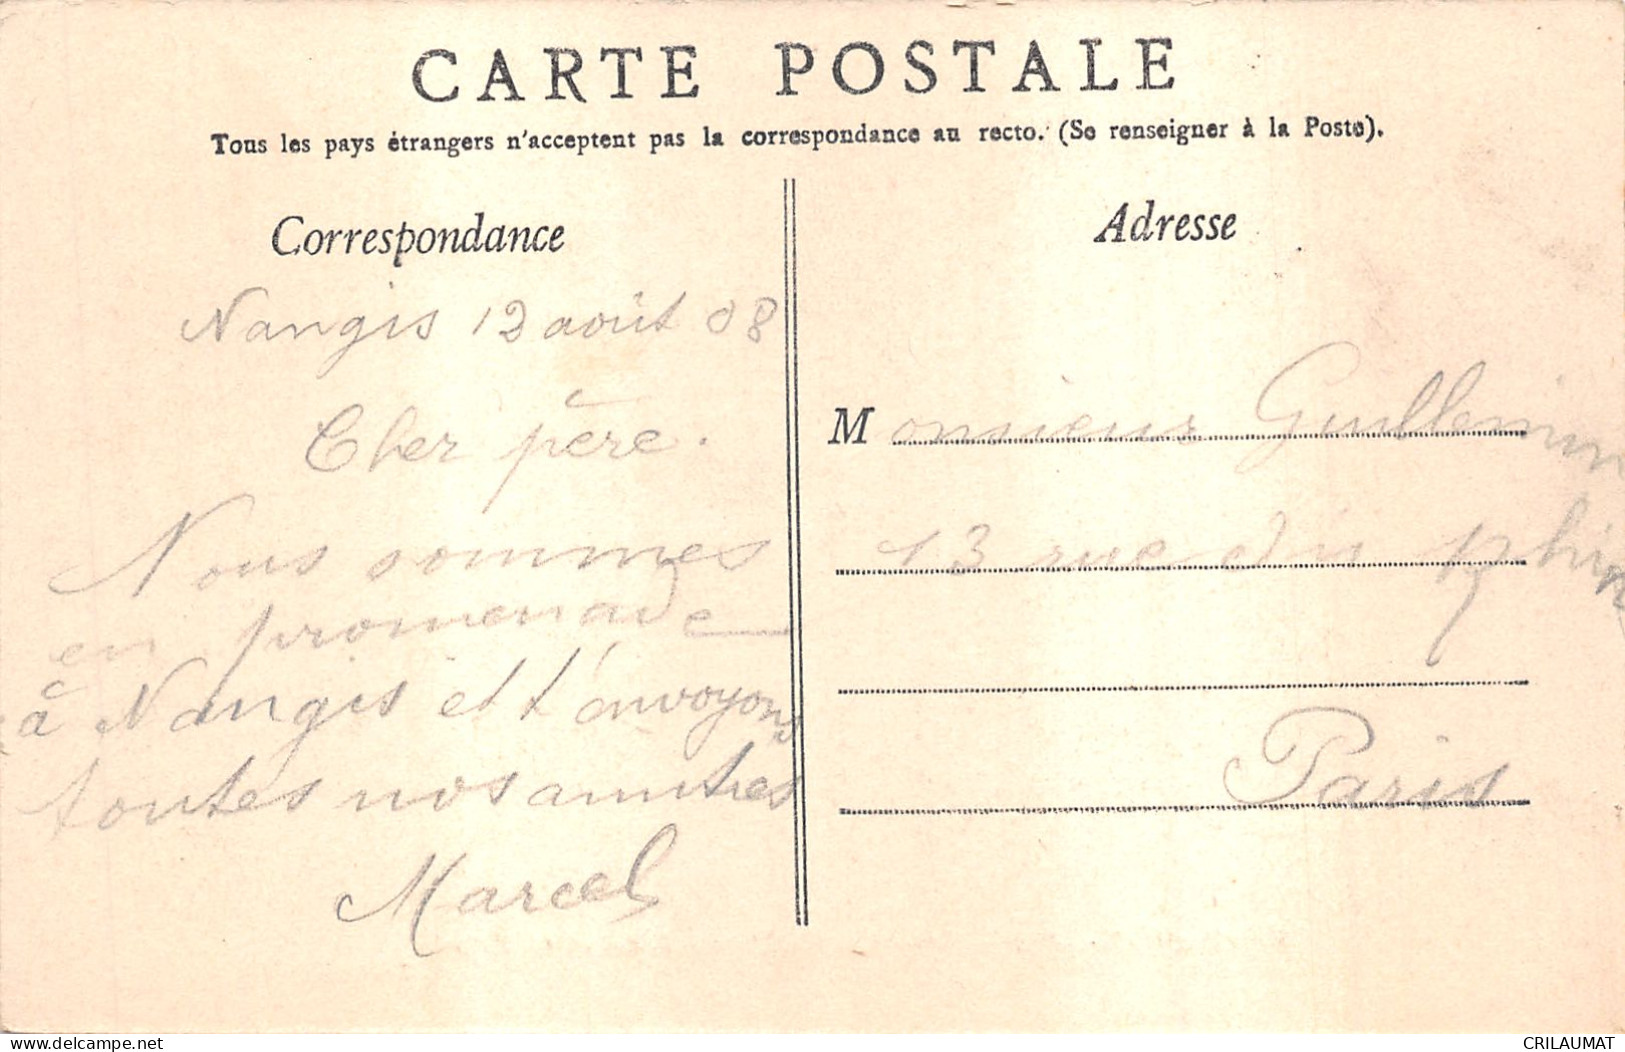 CARTE POSTALE
Tous les pays étrangers n'acceptent pas la correspondance au recto. (Se renseigner à la Poste).
Correspondance
Nangis 12 août 08
Cher père.
Nous sommes
en promenade
à Nangis et t'envoyons
toutes nos amitiés
Marcel
Adresse
Monsieur Guillemin
13 rue du Rhin
Paris
www.delcampe.net
CRILAUMAT